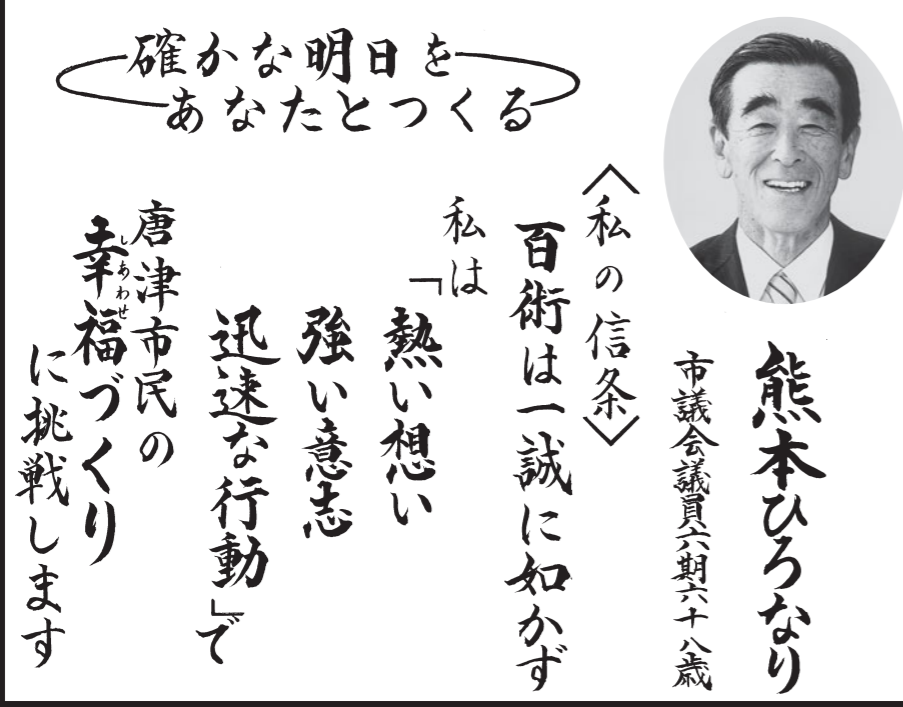 確かな明日を
あなたとつくる
熊本ひろなり
市議会議員六期六十八歳
〈私の信条〉
百術は一誠に如かず
私は
「熱い想い
強い意志
迅速な行動」で
唐津市民の
幸福づくり
しあわせ
に挑戦します